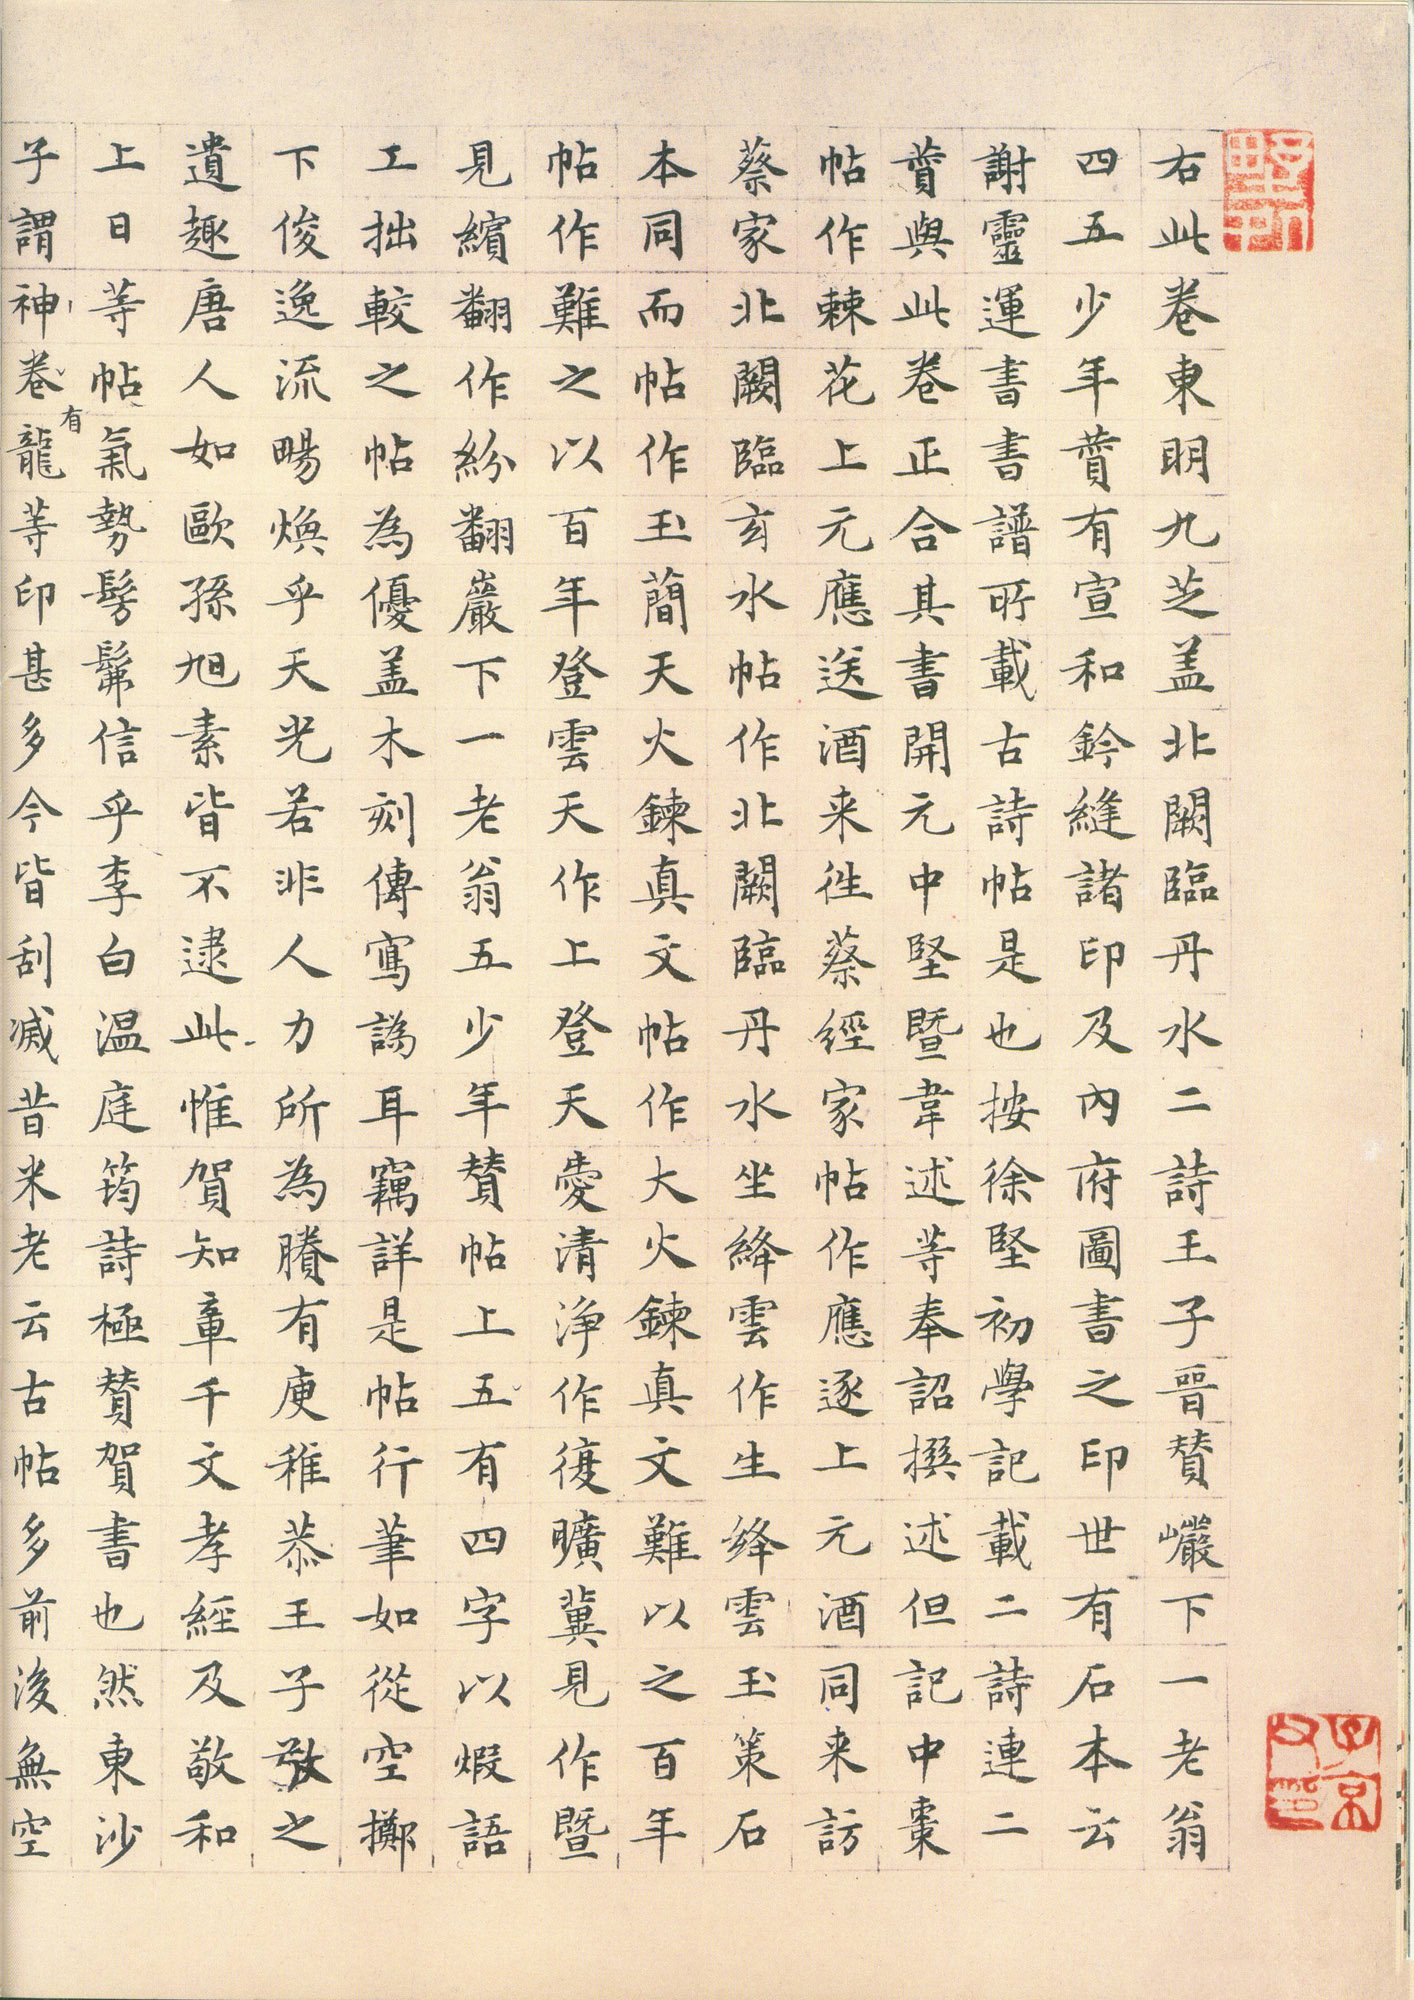 右此卷東明九芝盖北闕臨丹水二詩王子晉賛巗下一老翁
四五少年賛有宣和鈐縫諸印及內府圖書之印世有石本云
謝靈運書書譜所載古詩帖是也按徐堅初學記載二詩連二
賛與此卷正合其書開元中堅暨韋述等奉詔撰述但記中棗
帖作棘花上元應送酒来徃蔡經家帖作應逐上元酒同来訪
蔡家北闕臨玄水帖作北闕臨丹水坐絳雲作生絳雲玉策石
本同而帖作玉簡天火鍊真文帖作大火鍊真文難以之百年
帖作難之以百年登雲天作上登天愛清浄作復曠冀見作暨
見繽翻作紛翻巖下一老翁五少年賛帖上五有四字以煆語
工拙較之帖為優盖木刻傳寫譌耳竊詳是帖行筆如從空擲
下俊逸流暢煥乎天光若非人力所為賸有庾稚恭王子敬之
遺趣唐人如歐孫旭素皆不逮此惟賀知章千文孝經及敬和
上日等帖氣勢髣髴信乎李白温庭筠詩極賛賀書也然東沙
子謂神卷有龍等印甚多今皆刮滅昔米老云古帖多前後無空